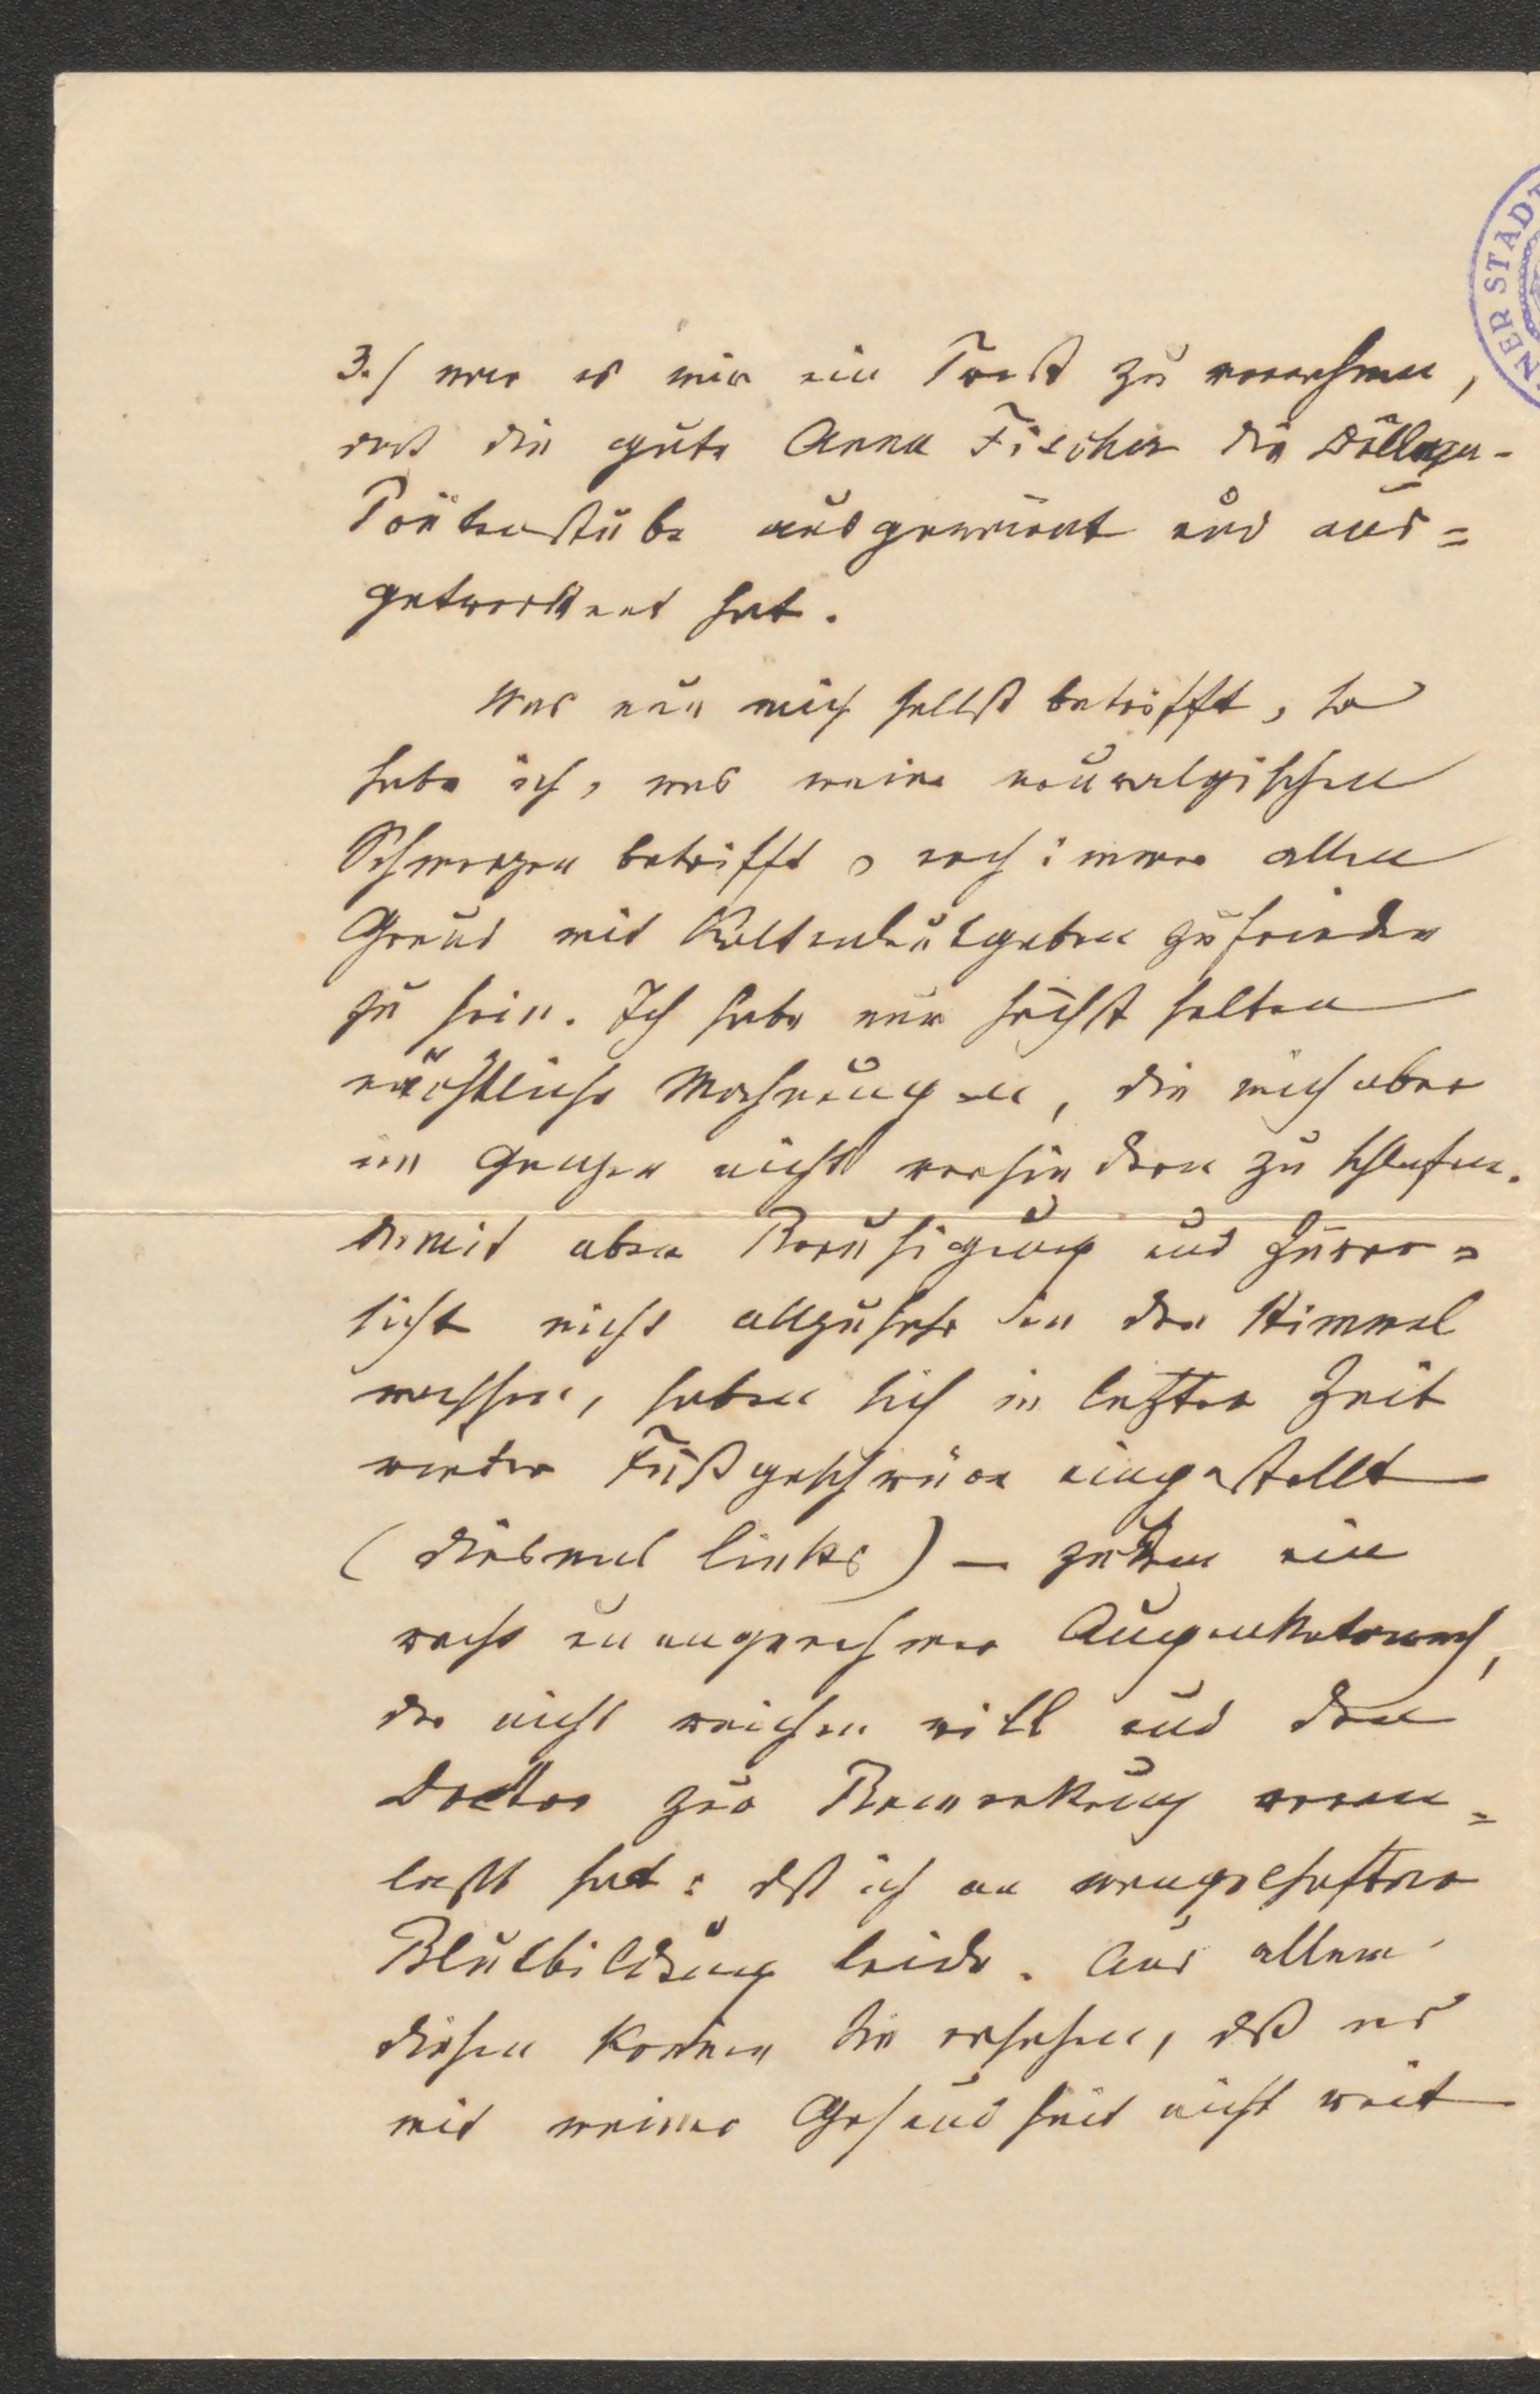 NER STADT
3./ war es mir ein Trost zu vernehmen,
daß die gute Anna Fischer die Döllacher-
Touristenstube ausgeräumt und aus=
getrocknet hat.
Was nun mich selbst betrifft, so
habe ich, was meine neuralgischen
Schmerzen betrifft, noch immer allen
Grund mit Kaltenleutgeben zufrieden
zu sein. Ich habe nur höchst selten
nächtliche Mahnungen, die mich aber
im Ganzen nicht verhindern zu schlafen.
Damit aber Beruhigung und Zuver=
sicht nicht allzusehr in den Himmel
wachsen, haben sich in letzter Zeit
wieder Fußgeschwüre eingestellt
(diesmal links) — zudem ein
recht unangenehmer Augenkatarrh,
der nicht weichen will und den
Doctor zur Bemerkung veran=
laßt hat: daß ich an mangelhafter
Blutbildung leide. Aus allem
diesen können Sie ersehen, daß es
mit meiner Gesundheit nicht weit